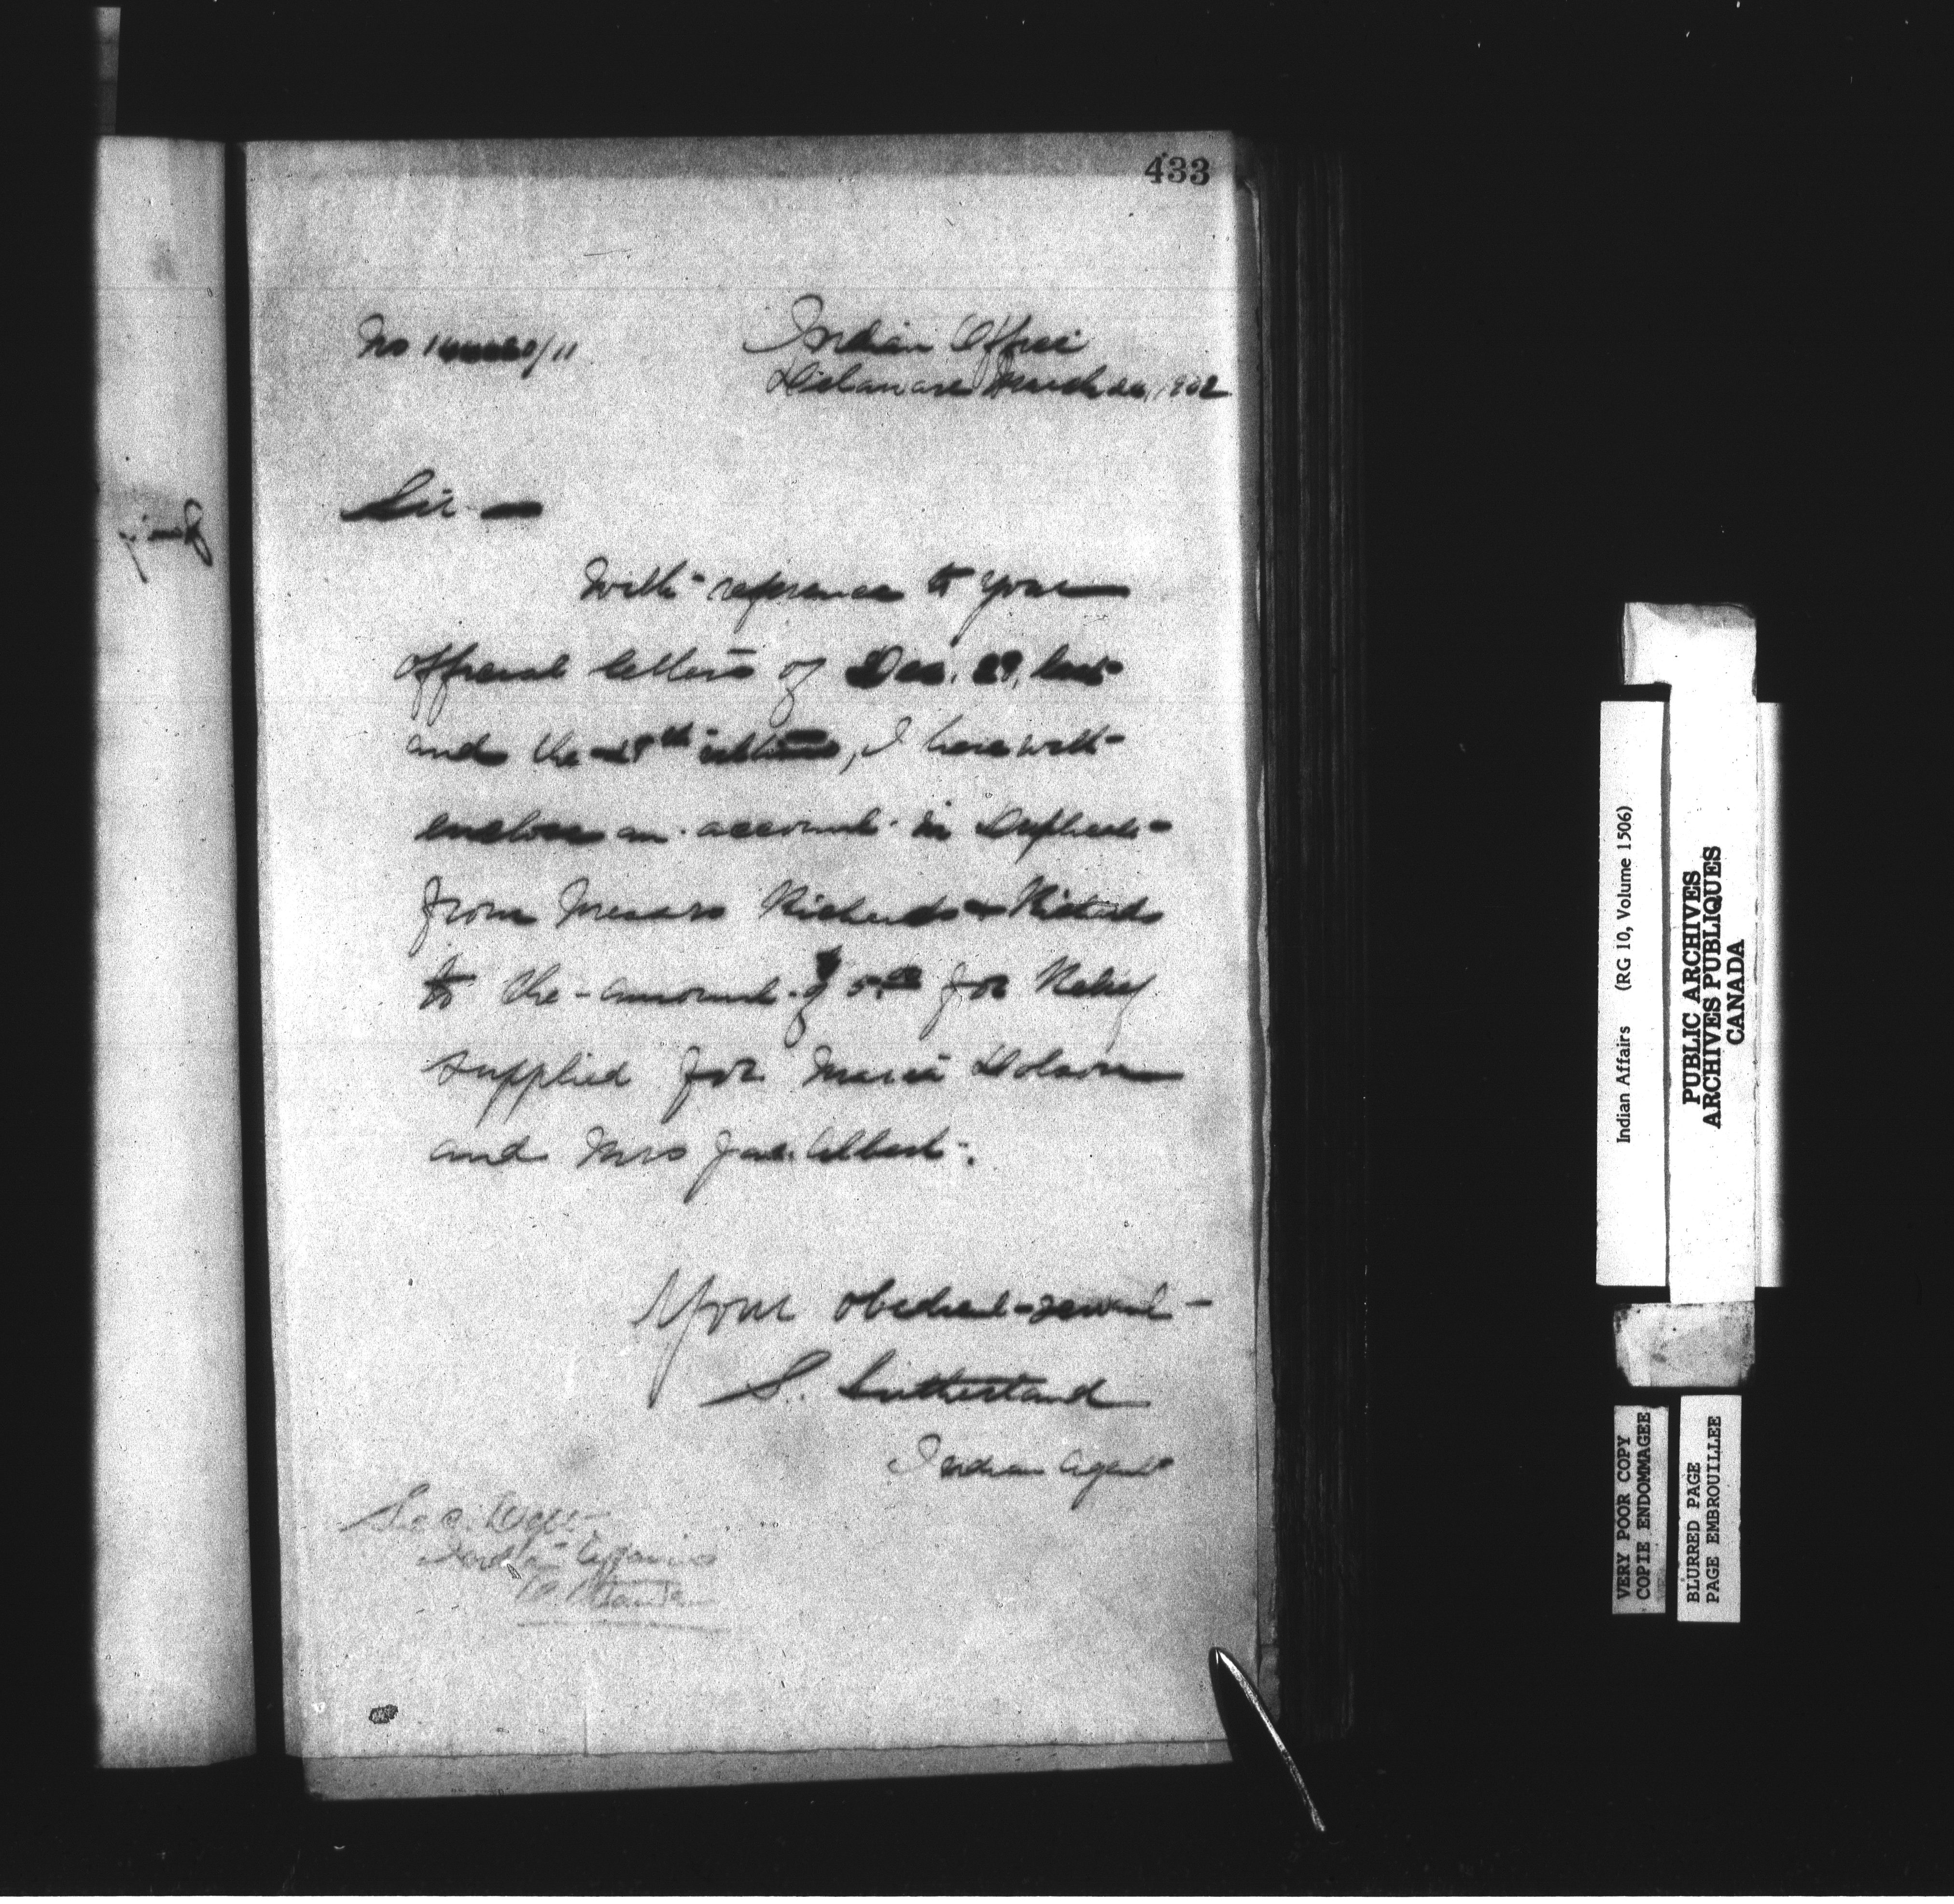 433
No
Indian Office
Delaware March 1902
Sir
With reference to your
official letters of Dec. 29, last
and the I herewith
enclose an account in Duplicate
from Messrs Richards & Richards
to the amount of $5.00 for Relief
supplied for Maria Dolson
and Mrs Albert.
Your obedient servant
S. Sutherland
Indian Agent
Sec. Dept
Indian Affairs
Ottawa
Indian Affairs (RG 10, Volume 1506)
PUBLIC ARCHIVES
ARCHIVES PUBLIQUES
CANADA
VERY POOR COPY
COPIE ENDOMMAGEE
BLURRED PAGE
PAGE EMBROUILLEE